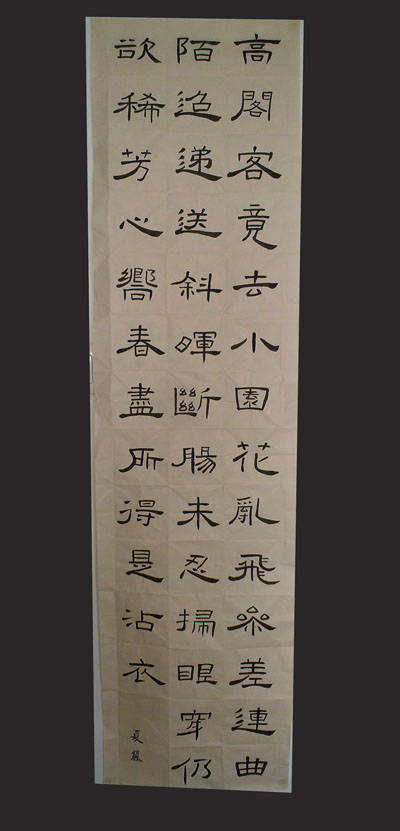 高閣客竟去小園花亂飛參差連曲
陌迢递送斜暉斷腸未忍掃眼穿仍
欲稀芳心嚮春盡所得是沾衣
夏